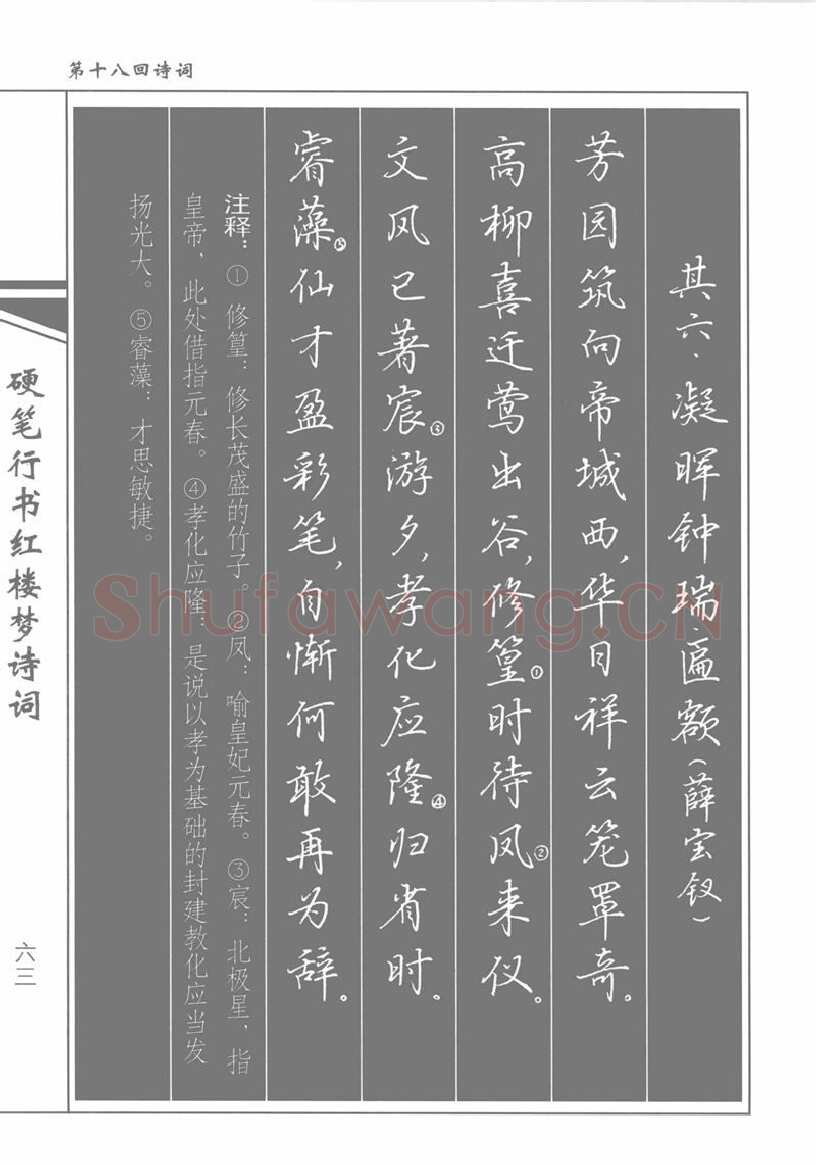 第十八回诗词
其六·凝晖钟瑞·匾额(薛宝钗)
芳园筑向帝城西,华日祥云笼罩奇。
高柳喜迁莺出谷,修篁①时待凤②来仪。
文风已著宸③游夕,孝化应隆④归省时。
睿藻⑤仙才盈彩笔,自惭何敢再为辞。
注释:①修篁:修长茂盛的竹子。②凤:喻皇妃元春。③宸:北极星,指
皇帝,此处借指元春。④孝化应隆:是说以孝为基础的封建教化应当发
扬光大。⑤睿藻:才思敏捷。
硬笔行书红楼梦诗词
六三
Shufawang.CN